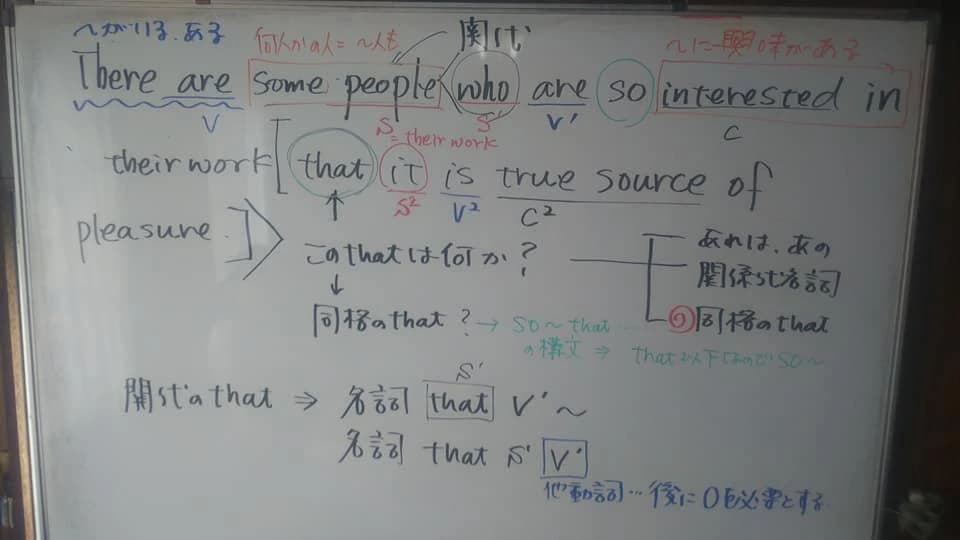 〜がいる、ある
何人かの人=〜人も
関代
〜に興味がある
There are some people who are so interested in
V
S
S'
V'
C
= their work
their work [that it is true source of
S² V² C²
pleasure.]
このthatは何か?
あれは、あの
関係代名詞
同格のthat?
→ so〜that…
の構文 ⇒
that以下なので so〜
同格のthat
関代のthat ⇒ 名詞 that V'〜
S'
名詞 that S' V'
他動詞…後にOを必要とする